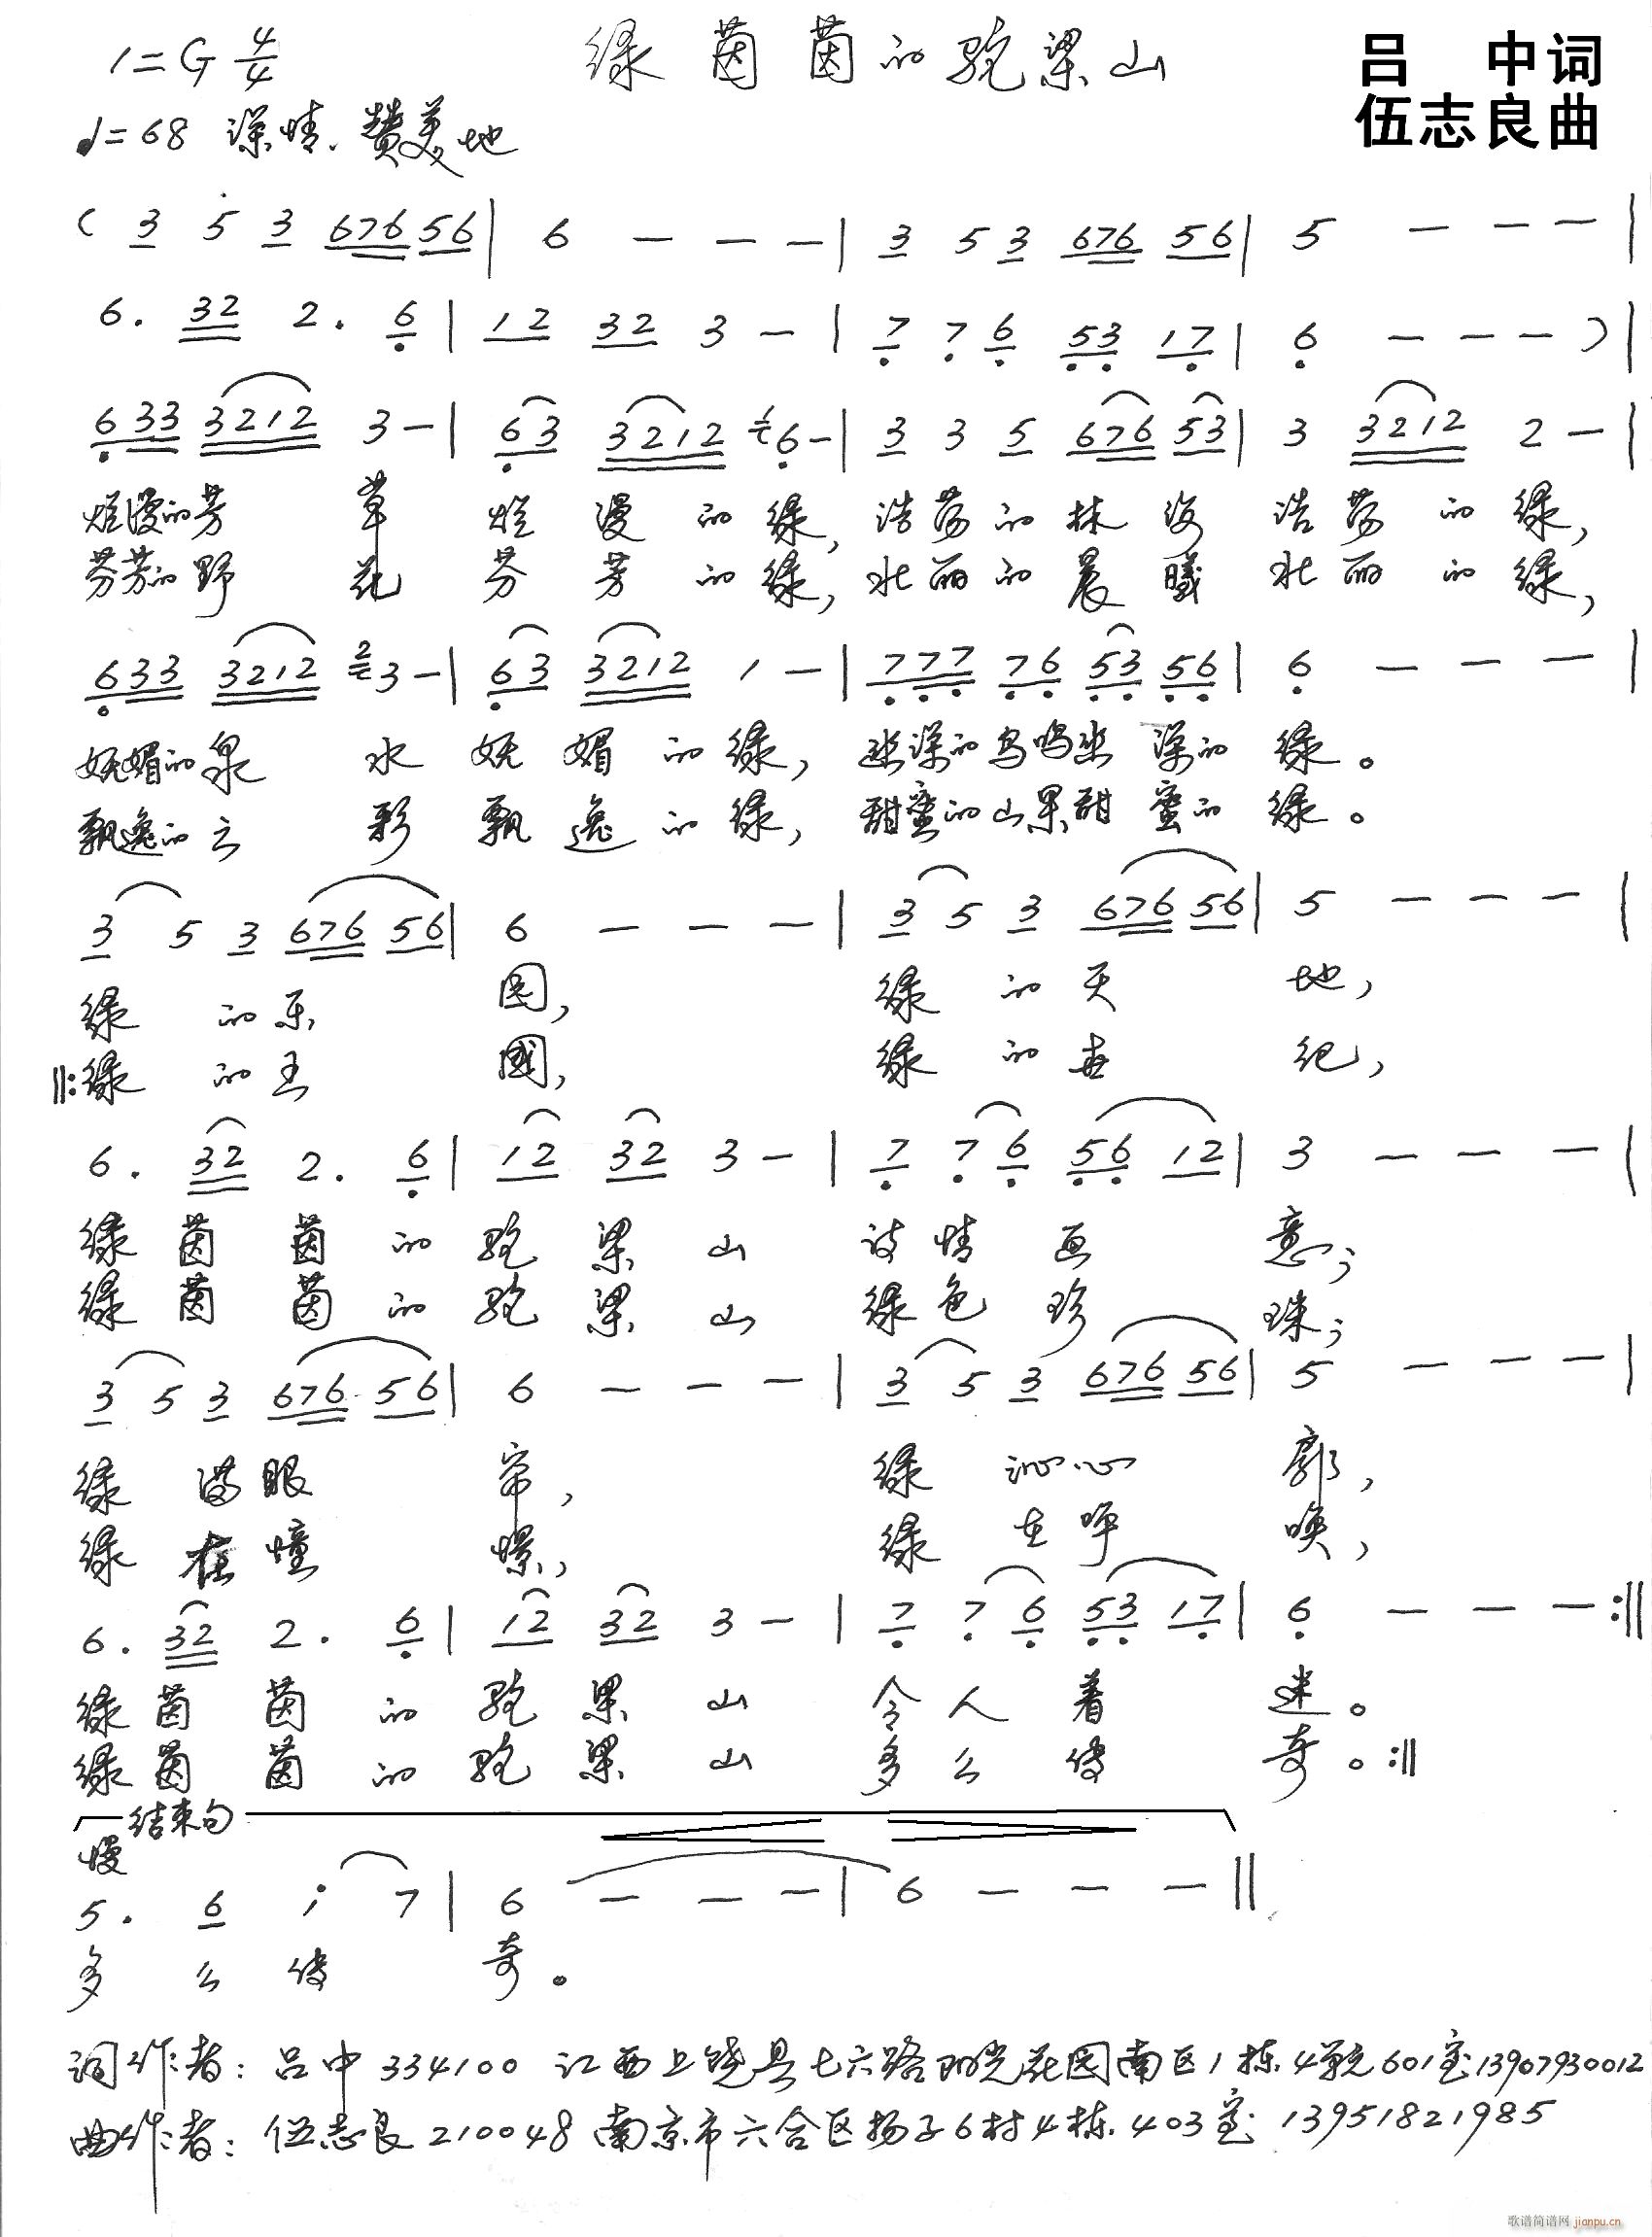 1=G 4/4 绿茵茵的驼梁山 吕 中词
♩=68 深情、赞美地 伍志良曲
( 3 5 3 676 56 | 6 - - - | 3 5 3 676 56 | 5 - - - |
6. 32 2. 6 | 12 32 3 - | 7 7 6 53 17 | 6 - - - ) |
633 3212 3 - | 63 3212 1 6 - | 3 3 5 676 53 | 3 3212 2 - |
烂漫的芳 草 烂 漫 的 绿, 浩荡的林海 浩荡的绿,
芬芳的野 花 芬 芳 的 绿, 壮丽的晨曦 壮丽的绿,
633 3212 2 3 - | 63 3212 1 - | 777 76 53 56 | 6 - - - |
妩媚的泉 水 妩 媚 的 绿, 幽深的鸟鸣幽 深的 绿。
飘逸的云 彩 飘 逸 的 绿, 甜蜜的山果甜 蜜的 绿。
3 5 3 676 56 | 6 - - - | 3 5 3 676 56 | 5 - - - |
绿 的乐 园, 绿 的天 地,
‖:绿 的王 國, 绿 的世 纪,
6. 32 2. 6 | 12 32 3 - | 7 7 6 56 12 | 3 - - - |
绿茵 茵 的 驼 梁 山 诗情 画 意;
绿茵 茵 的 驼 梁 山 绿色 珍 珠;
3 5 3 676 56 | 6 - - - | 3 5 3 676 56 | 5 - - - |
绿 满眼 帘, 绿 沁心 廓,
绿 在憧 憬, 绿 在呼 唤,
6. 32 2. 6 | 12 32 3 - | 7 7 6 53 17 | 6 - - - :‖
绿茵 茵 的 驼 梁 山 令人 着 迷。
绿茵 茵 的 驼 梁 山 多么 传 奇。:‖
结束句
慢
5. 6 i 7 | 6 - - - | 6 - - - ‖
多 么 传 奇。
词作者: 吕中 334100 江西上饶县七六路阳光花园南区1栋4单元601室13907930012
曲作者: 伍志良 210048 南京市六合区扬子6村4栋403室 13951821985
歌谱简谱网 jianpu.cn